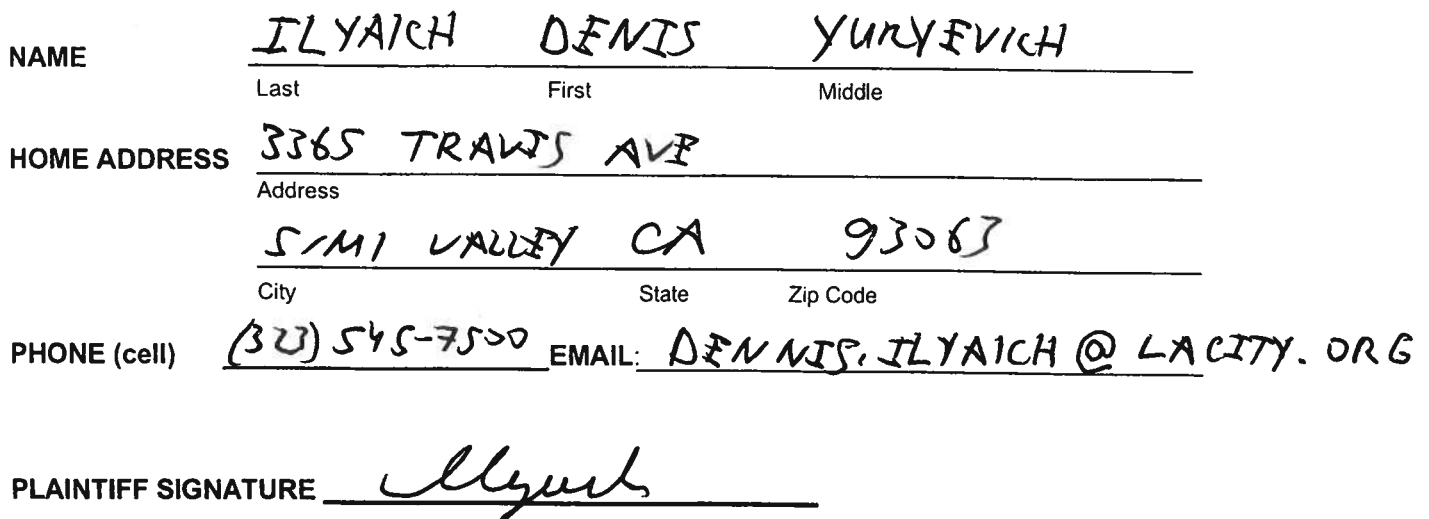 NAME ILYAICH DENIS YURYEVICH
Last First Middle
HOME ADDRESS 3365 TRAVIS AVE
Address
SIMI VALLEY CA 93063
City State Zip Code
PHONE (cell) (323) 545-7500 EMAIL: DENNIS.ILYAICH@LACITY.ORG
PLAINTIFF SIGNATURE